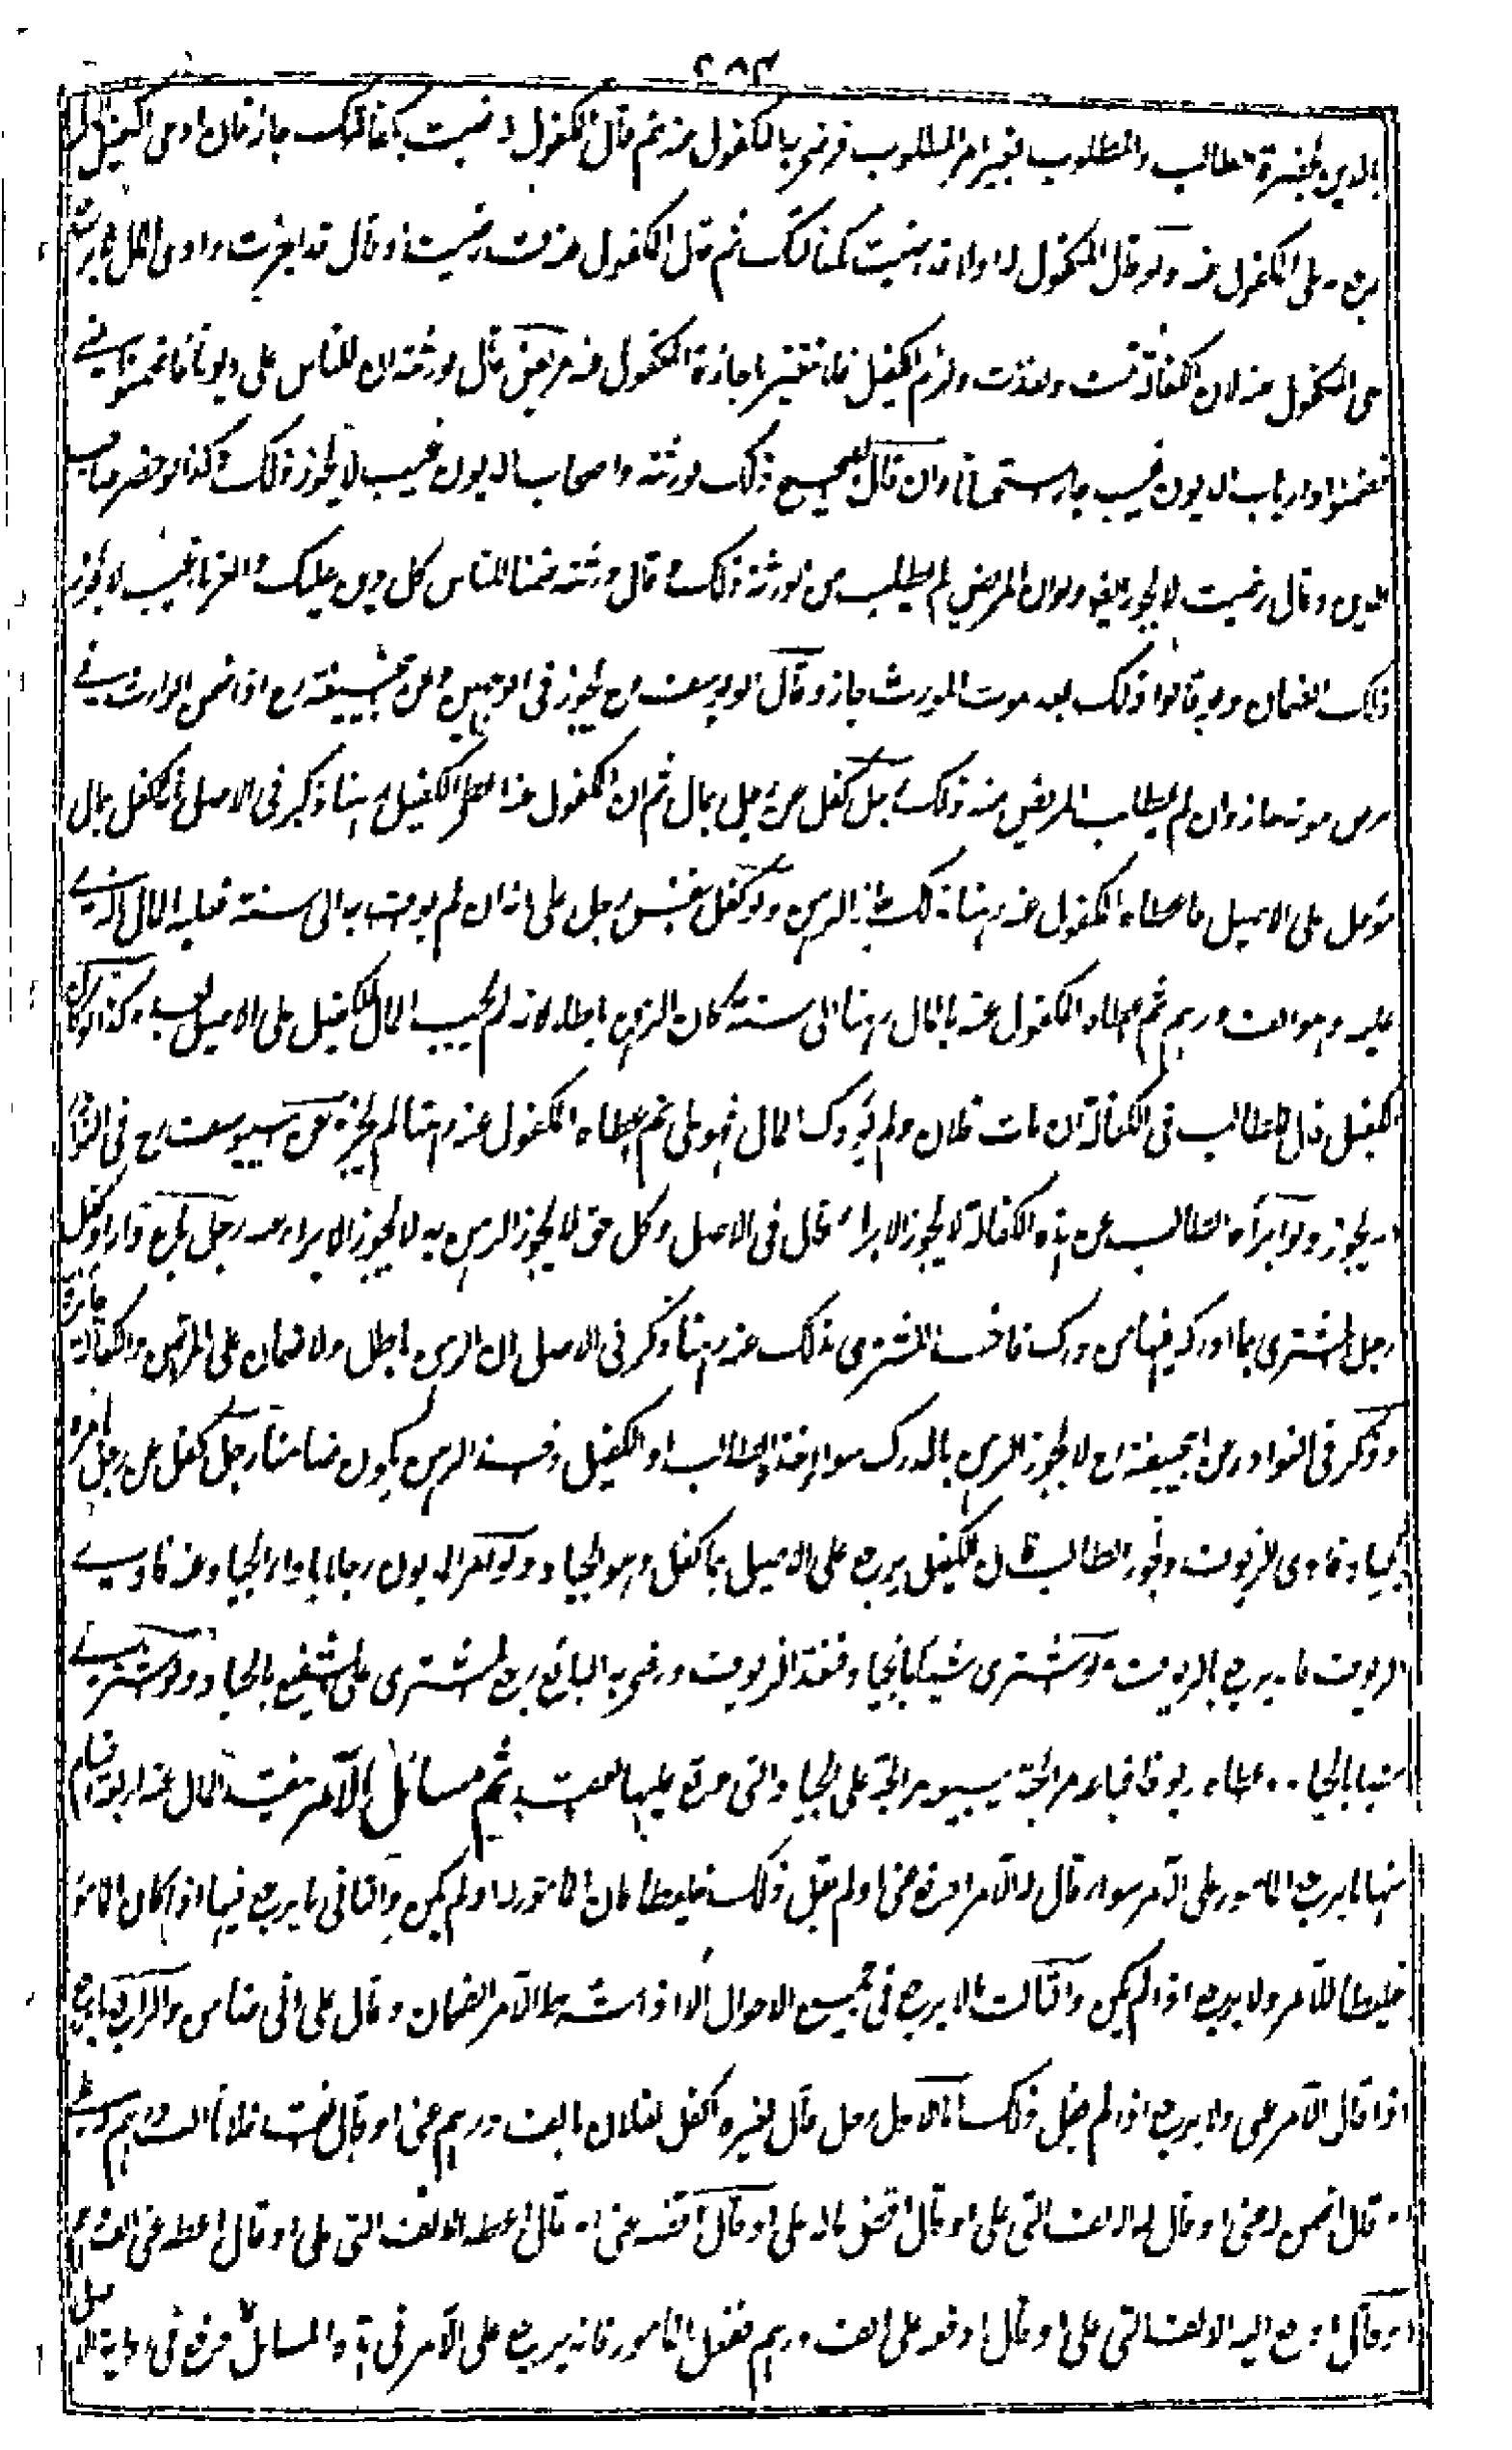 بالدين بحضرة الطالب والمطلوب بغير امر المطلوب فرضي بالمكفول عنه ثم قال المكفول له رضيت بكفالتك جاز فان ادى الكفيل المال
يرجع به على المكفول عنه ولو قال المكفول له اولا قد رضيت كفالتك ثم قال المكفول عنه قد رضيت او قال قد اجزت وادى المال لا يرجع
على المكفول عنه لان الكفالة تمت ونفذت ولزم الكفيل فلا تتغير باجازة المكفول عنه مريض قال لورثته ان للناس علي ديونا فاضمنوا عني
فضمنوا وارباب الديون غيب جاز استحسانا وان قال الصحيح ذلك لورثته واصحاب الديون غيب لا يجوز ذلك وكذا لو حضر صاحب
الدين وقال رضيت لا يجوز ايضا ولو ان المريض لم يطلب من الورثة ذلك وقال ورثته ضمنا للناس كل دين عليك والغرماء غيب لا يجوز
ذلك الضمان ولو قالوا ذلك بعد موت المورث جاز وقال ابو يوسف رح يجوز في الوجهين وعن ابي حنيفة رح اذا ضمن الوارث في
مرض موته جاز وان لم يطلب المريض منه ذلك رجل كفل عن رجل بمال ثم ان المكفول عنه اعطى الكفيل رهنا ذكر في الاصل انه لو كفل بمال
مؤجل على الاصيل فاعطاه المكفول عنه رهنا بذلك جاز الرهن ولو كفل بنفس رجل على انه ان لم يواف به الى سنة فعليه المال الذي
عليه وهو الف درهم ثم اعطاه المكفول عنه بالمال رهنا الى سنة كان الرهن باطلا لانه لم يجب المال للكفيل على الاصيل بعد وكذا لو كان
الكفيل قال للطالب في الكفالة ان مات فلان ولم يؤدك المال فهو علي ثم اعطاه المكفول عنه رهنا لم يجز وعن ابي يوسف رح في النوادر
انه يجوز ولو ابرأه الطالب عن هذه الكفالة لا يجوز الابراء قال في الاصل وكل حق لا يجوز الرهن به لا يجوز الابراء عنه رجل باع دارا وكفل
رجل للمشتري بما ادركه فيها من درك فاخذ المشتري بذلك عنه رهنا ذكر في الاصل ان الرهن باطل ولا ضمان على المرتهن والكفالة جائزة
وذكر في النوادر عن ابي حنيفة رح لا يجوز الرهن بالدرك سواء اخذه الطالب او الكفيل وفساد الرهن يكون ضامنا رجل كفل عن رجل بامره
بجياد فادى الزيوف وتجوز الطالب فان الكفيل يرجع على الاصيل بما كفل وهو الجياد ولو امر المديون رجلا باداء الجياد عنه فادى
الزيوف فانه يرجع بالزيوف ولو اشترى شيئا بالجياد فنقد الزيوف ورضي به البائع يرجع المشتري على الشفيع بالجياد ولو اشترى
شيئا بالجياد واعطاه زيوفا فباعه مرابحة يبيعه مرابحة على الجياد والتي وقع عليها العقد ثم مسائل الامر بنقد المال عنه اربعة اقسام
منها ما يرجع المامور على الآمر سواء قال له الآمر ادفع عني او لم يقل ذلك خليطا كان المامور له او لم يكن والثاني ما يرجع فيها اذا كان المامور
خليطا للآمر ولا يرجع اذا لم يكن والثالث لا يرجع في جميع الاحوال الا اذا اشترط الآمر الضمان وقال على اني ضامن والرابع ما يرجع
اذا قال الآمر عني ولا يرجع اذا لم يقل ذلك اما الاول رجل قال لغيره اكفل لفلان بالف درهم عني او قال انقد فلانا الف درهم له علي
او قال اضمن له عني او قال له الالف التي علي او قال اقض ما له علي او قال اقضه عني او قال اعطه الالف التي علي او قال اعطه عني الف درهم
او قال ادفع اليه الالف التي علي او قال اوفه عني الف درهم ففعل المامور فانه يرجع على الآمر في هذه المسائل وقع في رواية الاصل